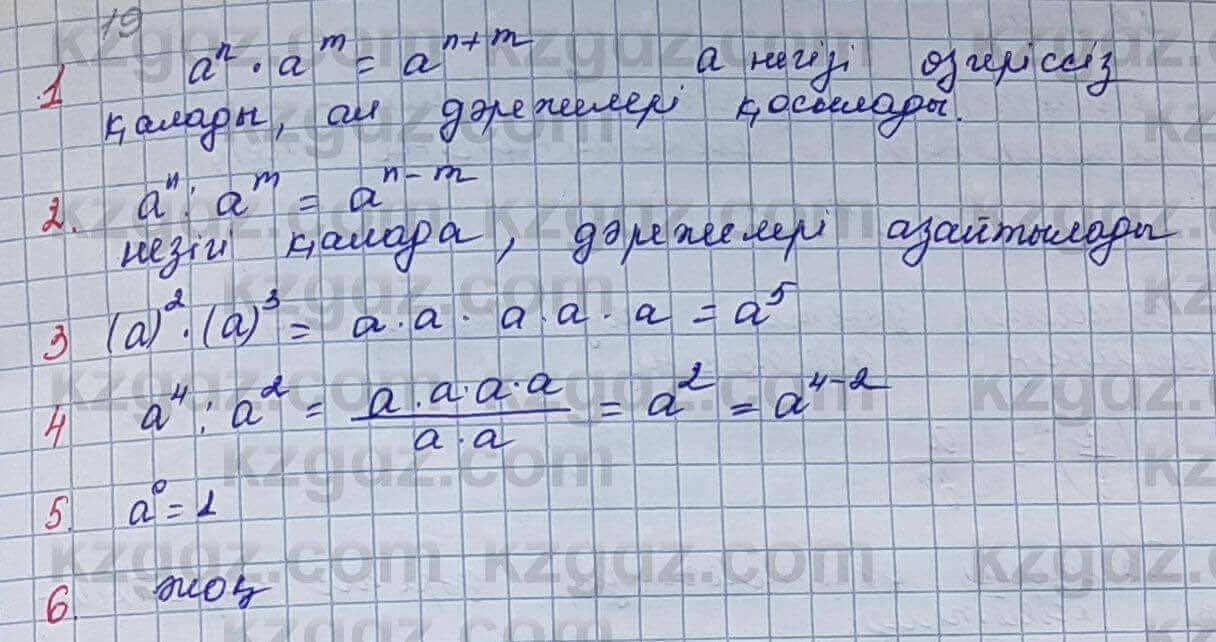 19
1 aⁿ · aᵐ = aⁿ⁺ᵐ а негізі өзгеріссіз
қалады, ал дәрежелері қосылады.
2. aⁿ : aᵐ = aⁿ⁻ᵐ
незігі қалара, дәрежелері азайтылады
3 (a)² · (a)³ = a · a · a · a · a = a⁵
4 a⁴ : a² = (a · a · a · a)/(a · a) = a² = a⁴⁻²
5. a⁰ = 1
6. жоқ
kzgdz.com